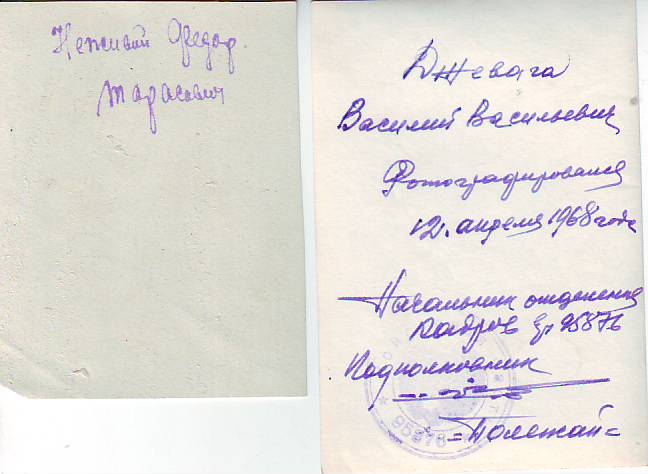 Неживий Федор
Тарасович
Джевага
Василий Васильевич
Фотографировался
12. апреля 1968 года
Начальник отделения
кадров в/ч 95876
Подполковник
=Полежай=
95876